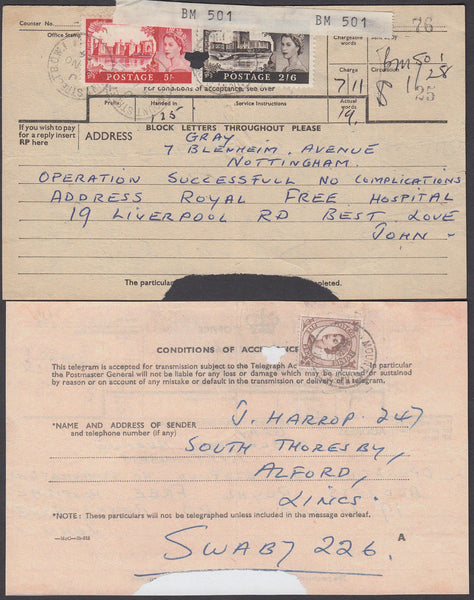 BM 501
BM 501
Counter No.
76
Office Stamp
Chargeable words
POSTAGE 5/-
POSTAGE 2/6
Charge
7/11
25
For conditions of acceptance, see over
Prefix
Handed in
Service Instructions
Actual words
125
19.
If you wish to pay for a reply insert RP here
BLOCK LETTERS THROUGHOUT PLEASE
ADDRESS GRAY
7 BLENHEIM. AVENUE
NOTTINGHAM.
OPERATION SUCCESSFULL NO COMPLICATIONS
ADDRESS ROYAL FREE HOSPITAL
19 LIVERPOOL RD BEST LOVE
JOHN -
The particulars
completed.
CONDITIONS OF ACCEPTANCE
This telegram is accepted for transmission subject to the Telegraph Ac
In particular
the Postmaster General will not be liable for any loss or damage which may be incurred or sustained
by reason or on account of any mistake or default in the transmission or delivery of a telegram.
*NAME AND ADDRESS OF SENDER
and telephone number (if any)
J. HARROP. 247
SOUTH THORESBY,
ALFORD,
LINCS.
*NOTE: These particulars will not be telegraphed unless included in the message overleaf.
A
SWABY 226.